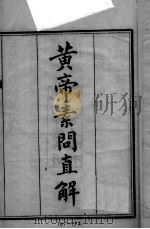 黃帝素問直解